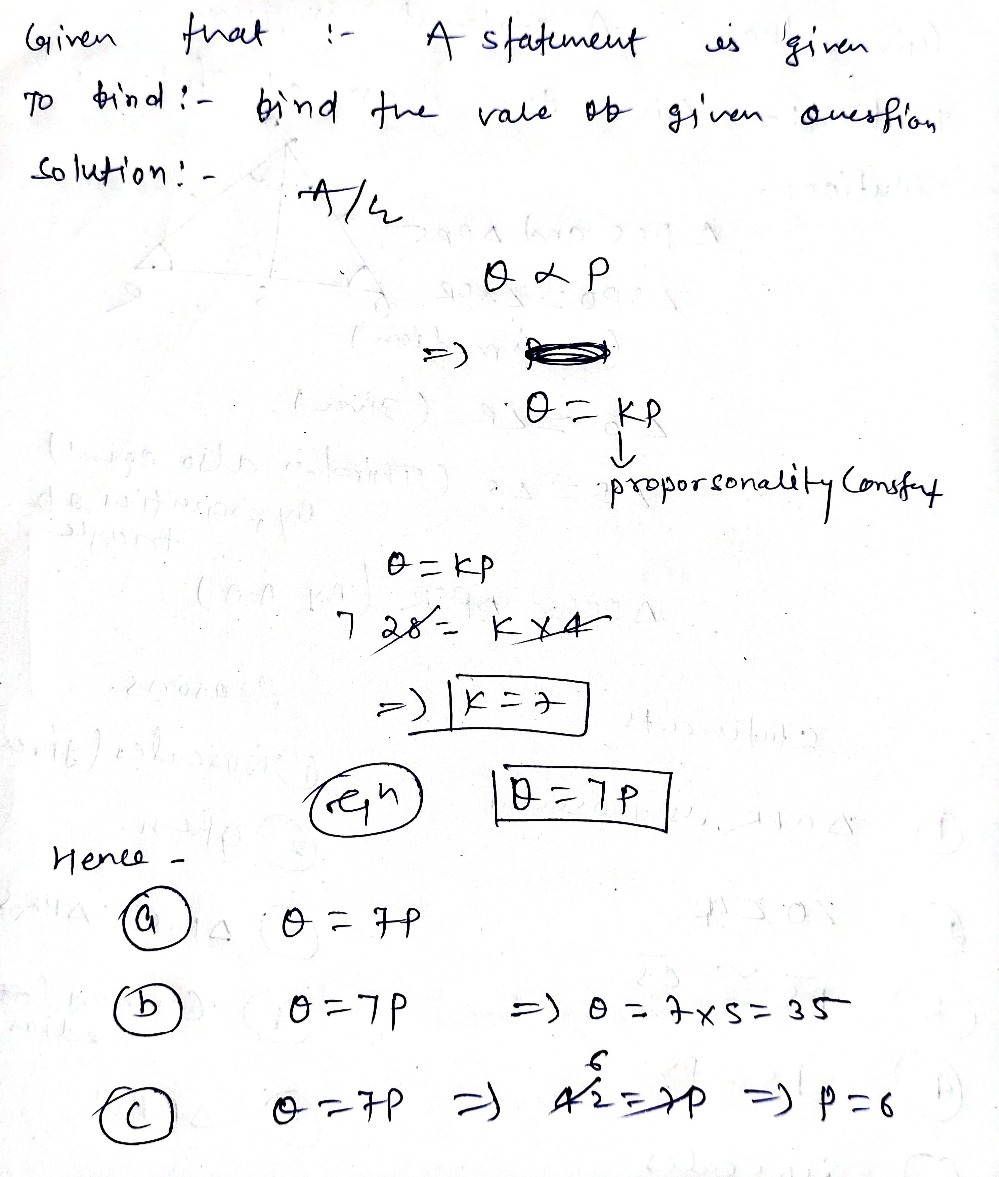 Given that :- A statement is given
To find :- find the vale of given question
Solution :-
A/q
Q ∝ P
=>
Q = KP
↓
proporsonality Constant
Q = KP
7 28 = K × 4
=> K = 7
eqn Q = 7P
Hence -
a Q = 7P
b Q = 7P => Q = 7×5 = 35
6
c Q = 7P => 42 = 7P => P = 6